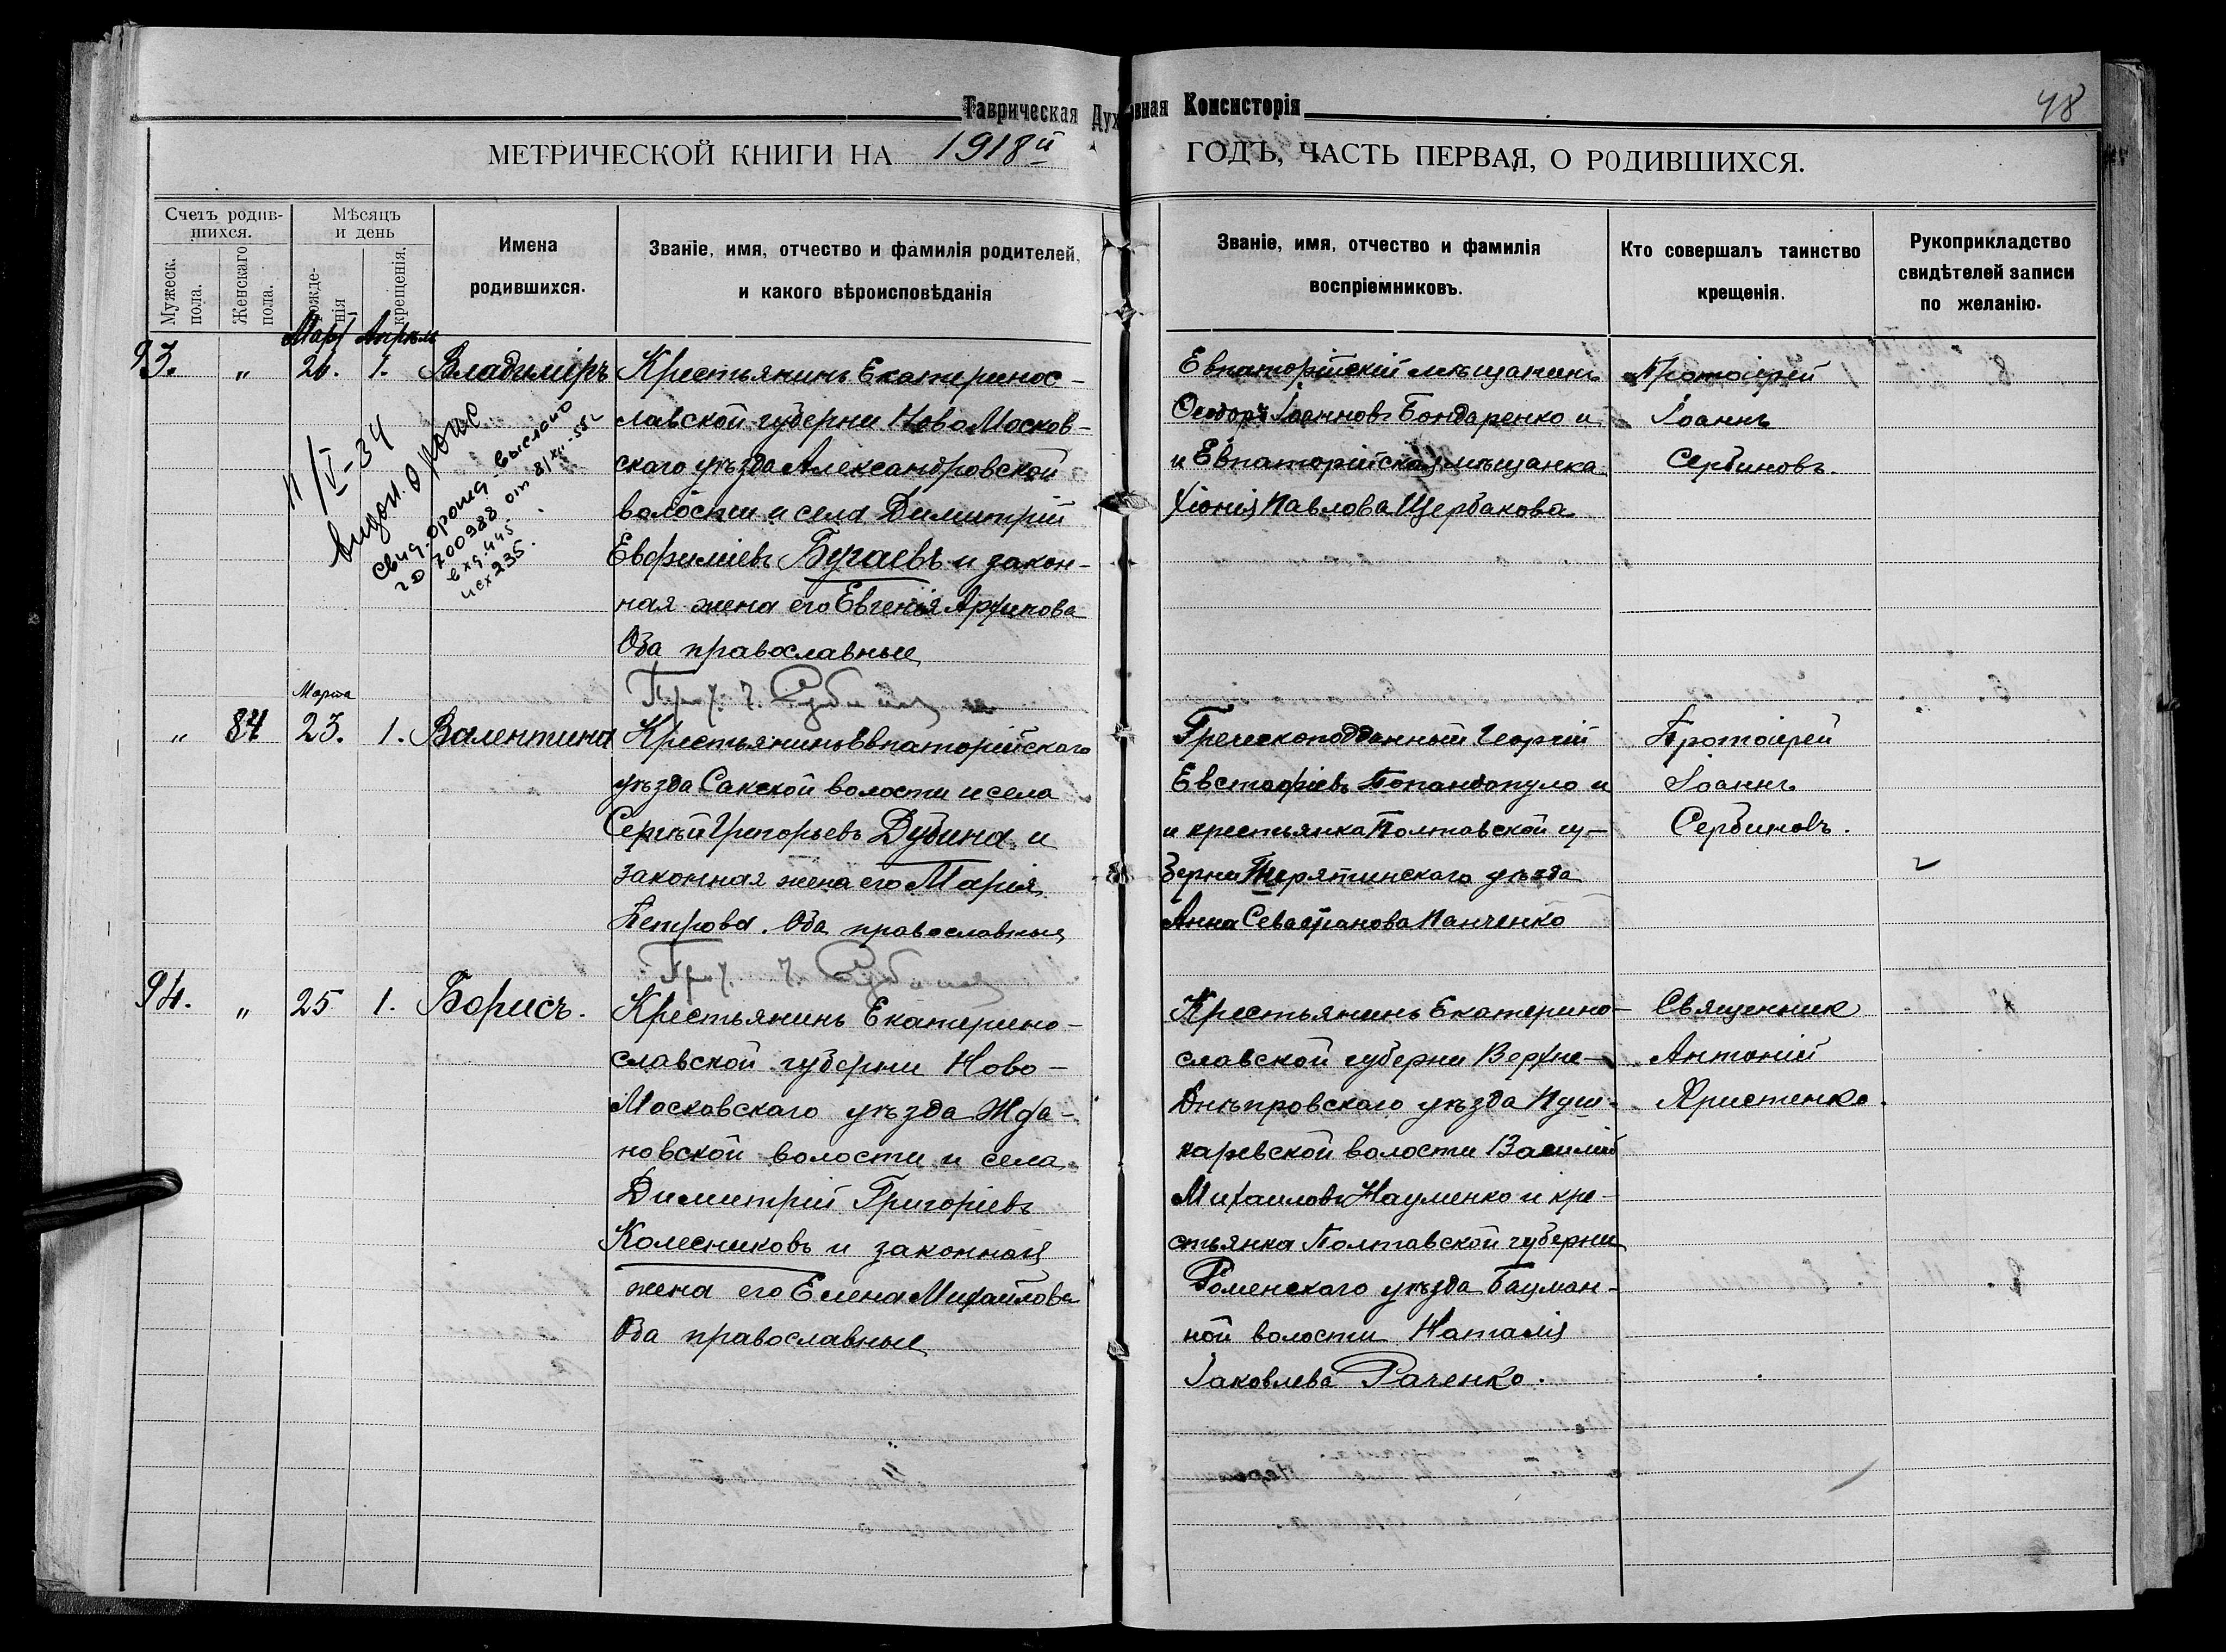 Таврическая Духовная Консисторія
48
МЕТРИЧЕСКОЙ КНИГИ НА 1918й ГОДЪ, ЧАСТЬ ПЕРВАЯ, О РОДИВШИХСЯ.
Счетъ родив-
шихся.
Мужеск.
пола.
Женскаго
пола.
Мѣсяцъ
и день
рожде-
нія
крещенія.
Имена
родившихся.
Званіе, имя, отчество и фамилія родителей,
и какого вѣроисповѣданія
Званіе, имя, отчество и фамилія
воспріемниковъ.
Кто совершалъ таинство
крещенія.
Рукоприкладство
свидѣтелей записи
по желанію.
Март Апрѣль
93. " 21. 1. Владиміръ
Крестьянинъ Екатеринос-
лавской губерни Ново Москов-
скаго уѣзда Александровской
волости и села Димитрій
Евфиміевъ Бугаевъ и закон-
ная жена его Евгенія Архипова
Оба православные
Прот. І. Сербиновъ
Евпаторійскій мѣщанинъ
Ѳеодоръ Іоанновъ Бондаренко и
и Евпаторійская мѣщанка
Хіонія Павлова Щербакова
Протоіерей
Іоаннъ
Сербиновъ.
11/V-34
выдан. о рожд
свид. о рожд - выслано
700988 от 8/XII-55г
вхд. 445
исх 235.
Марта
" 84 23. 1. Валентина
Крестьянинъ Евпаторійскаго
уѣзда Сакской волости и села
Сергѣй Григорьевъ Дубина и
законная жена его Марія
Петрова. Оба православные
Прот. І. Сербиновъ
Греческоподданный Георгій
Евстафіевъ Попандопуло и
и крестьянка Полтавской гу-
берни Пирятинскаго уѣзда
Анна Севастіанова Панченко
Протоіерей
Іоаннъ
Сербиновъ.
94. " 25 1. Борисъ.
Крестьянинъ Екатерино-
славской губерни Ново-
Московскаго уѣзда Жда-
новской волости и села
Димитрій Григоріевъ
Колесниковъ и законная
жена его Елена Михайлова
Оба православные
Крестьянинъ Екатерино-
славской губерни Верхне-
Днѣпровскаго уѣзда Пуш-
каревской волости Василій
Михаиловъ Науменко и кре-
стьянка Полтавской губерни
Роменскаго уѣзда Бацман-
ной волости Наталія
Іаковлева Раченко.
Священник
Антоній
Христенко.